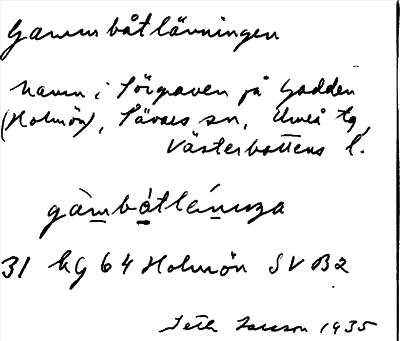 Gammbåtlänningen
Namn i Sörgraven på Gadden
(Holmön), Sävars sn, Umeå tg,
Västerbottens l.
gàmbåtlénıŋa
31 kg 64 Holmön SV B2
Seth Larsson 1935